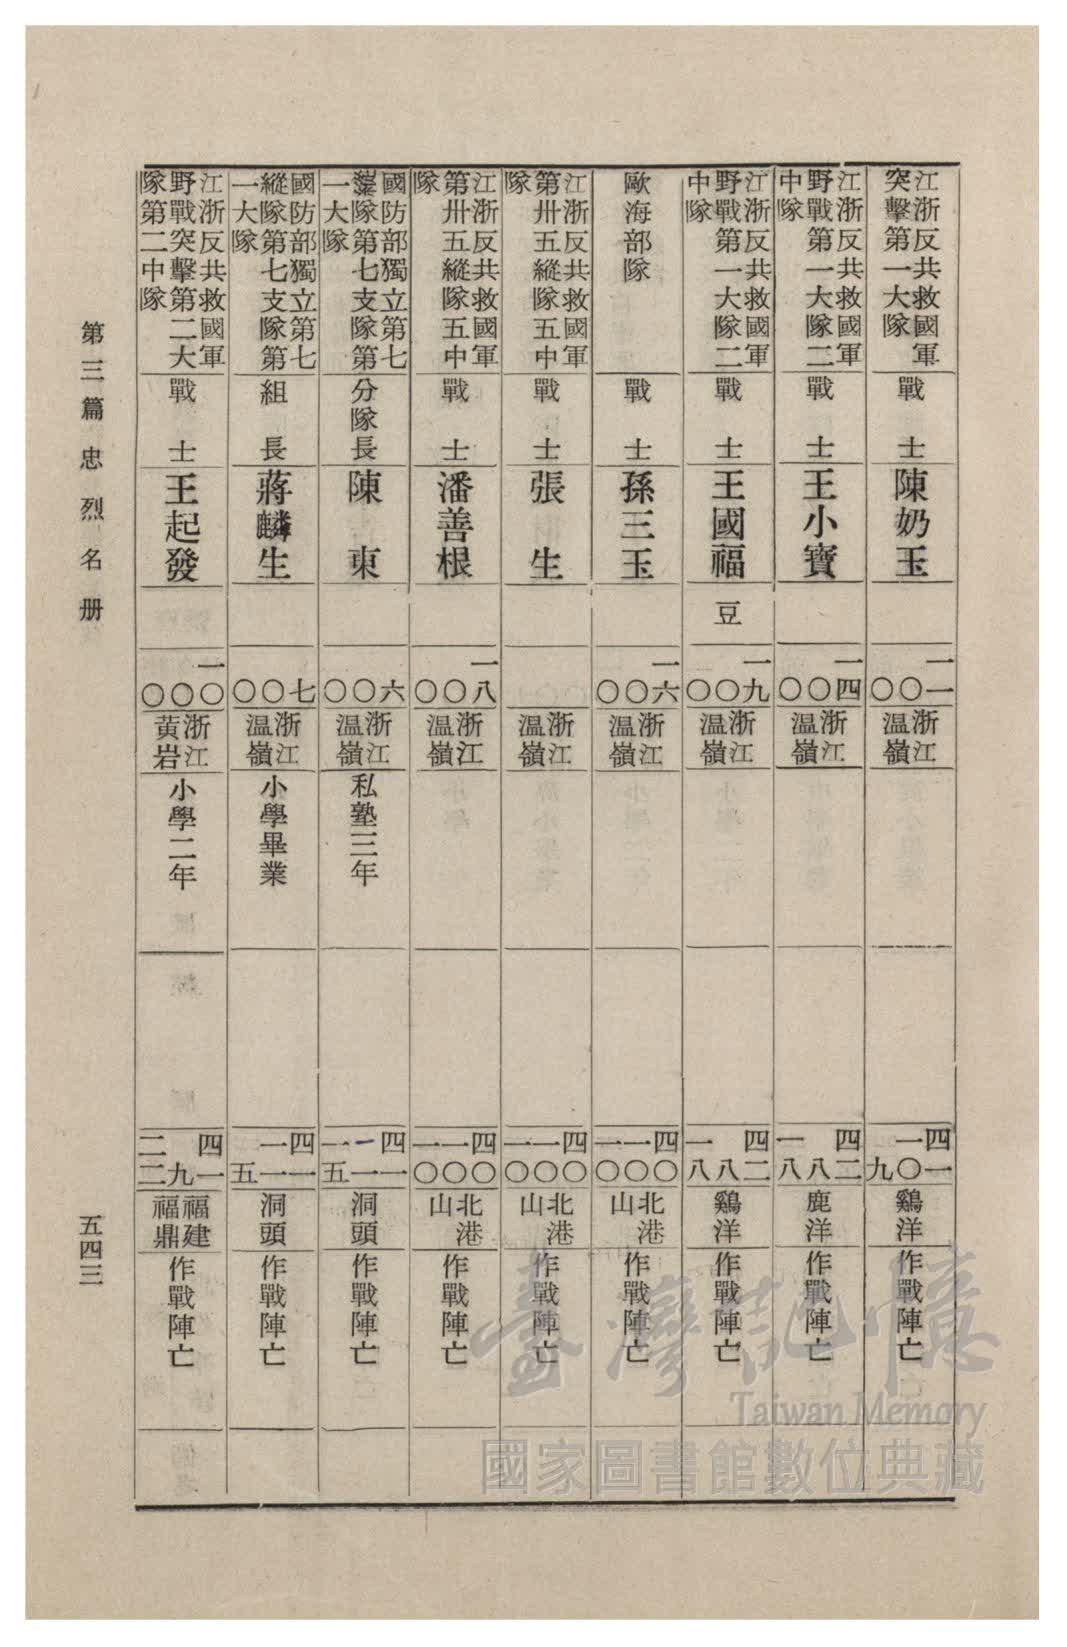 江浙反共救國軍
突擊第一大隊
戰士
陳奶玉
一一
〇
〇
浙江
溫嶺
四一
一〇
九
鷄洋
作戰陣亡
江浙反共救國軍
野戰第一大隊二
中隊
戰士
王小寶
一四
〇
〇
浙江
溫嶺
四二
八
一八
鹿洋
作戰陣亡
江浙反共救國軍
野戰第一大隊二
中隊
戰士
王國福
豆
一九
〇
〇
浙江
溫嶺
四二
八
一八
鷄洋
作戰陣亡
歐海部隊
戰士
孫三玉
一六
〇
〇
浙江
溫嶺
四〇
一〇
一〇
北港
山
作戰陣亡
江浙反共救國軍
第卅五縱隊五中
隊
戰士
張生
浙江
溫嶺
四〇
一〇
一〇
北港
山
作戰陣亡
江浙反共救國軍
第卅五縱隊五中
隊
戰士
潘善根
一八
〇
〇
浙江
溫嶺
四〇
一〇
一〇
北港
山
作戰陣亡
國防部獨立第七
縱隊第七支隊第
一大隊
分隊長
陳東
六
〇
〇
浙江
溫嶺
私塾三年
四一
一一
一五
洞頭
作戰陣亡
國防部獨立第七
縱隊第七支隊第
一大隊
組長
蔣麟生
七
〇
〇
浙江
溫嶺
小學畢業
四一
一一
五
洞頭
作戰陣亡
江浙反共救國軍
野戰突擊第二大
隊第二中隊
戰士
王起發
一〇
〇
〇
浙江
黃岩
小學二年
四一
九
二二
福建
福鼎
作戰陣亡
第三篇忠烈名册
五四三
臺灣記憶
Taiwan Memory
國家圖書館數位典藏